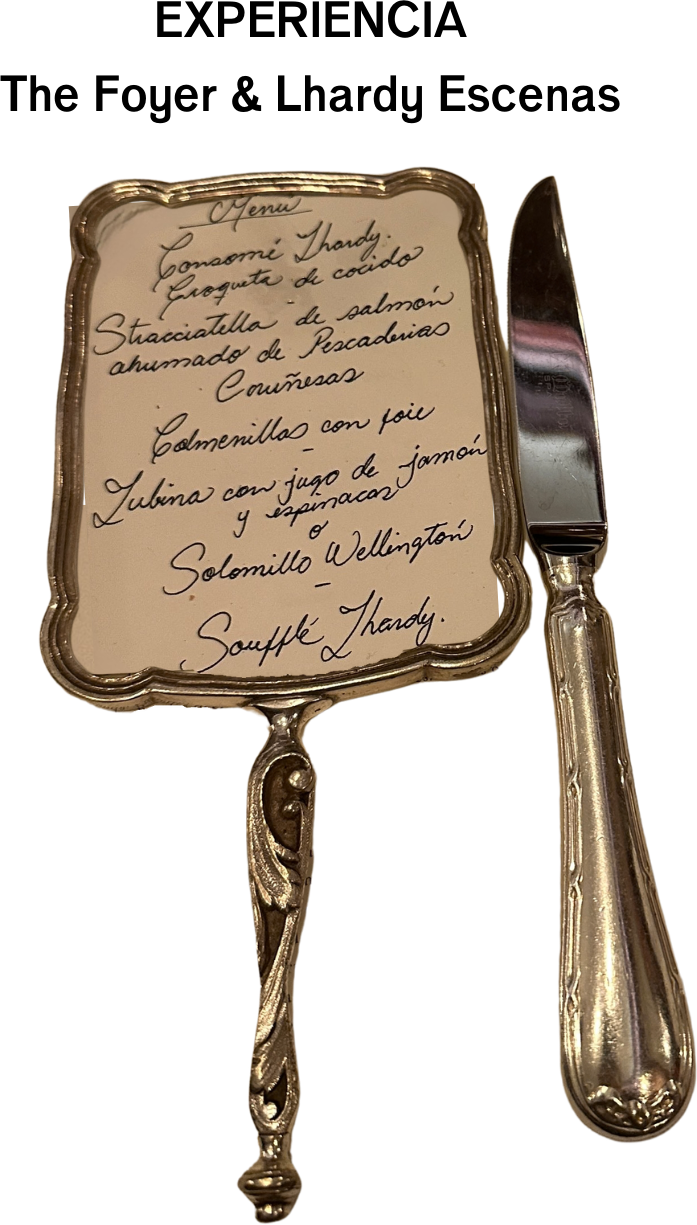 EXPERIENCIA
The Foyer & Lhardy Escenas
Menú
Consomé Lhardy.
Croqueta de cocido
-
Stracciatella de salmón
ahumado de Pescaderias
Coruñesas
Colmenillas con foie
-
Lubina con jugo de jamón
y espinacas
o
Solomillo Wellington
-
Soufflé Lhardy.